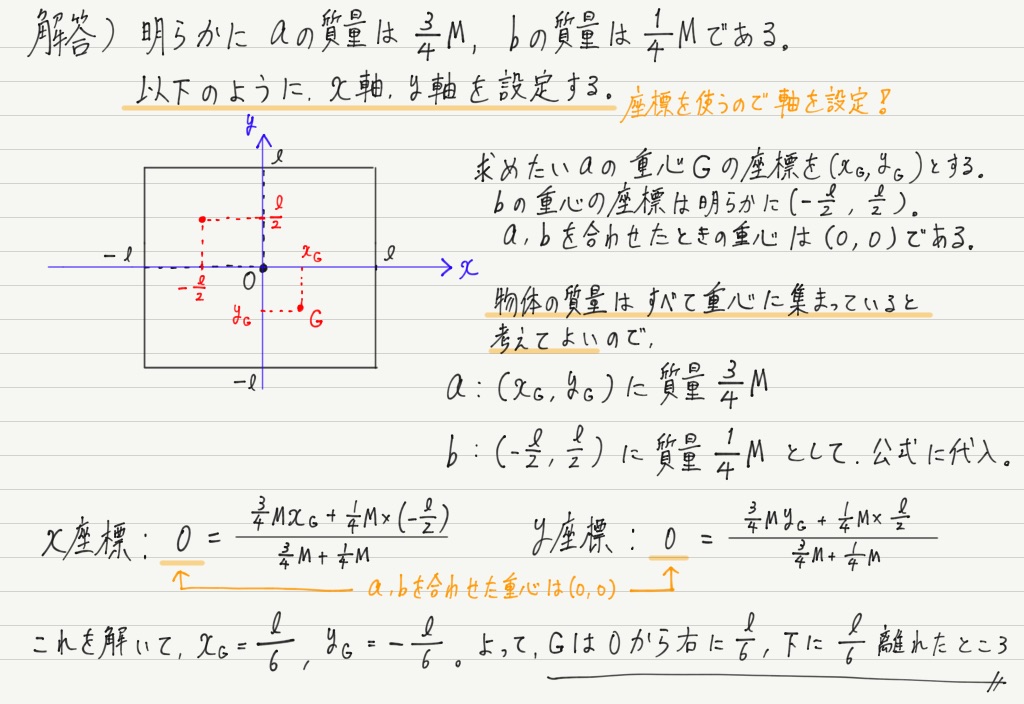 解答) 明らかに aの質量は 3/4 M, bの質量は 1/4 Mである。
以下のように, x軸, y軸を設定する。
座標を使うので軸を設定!
y
l
l/2
-l
l
x_G
x
O
-l/2
y_G
G
-l
求めたいaの重心Gの座標を(x_G, y_G)とする。
bの重心の座標は明らかに(-l/2, l/2)。
a, bを合わせたときの重心は(0, 0)である。
物体の質量はすべて重心に集まっていると
考えてよいので,
a : (x_G, y_G) に質量 3/4 M
b : (-l/2, l/2) に質量 1/4 M として, 公式に代入。
x座標 : 0 = (3/4 M x_G + 1/4 M × (-l/2)) / (3/4 M + 1/4 M)
y座標 : 0 = (3/4 M y_G + 1/4 M × l/2) / (3/4 M + 1/4 M)
a, bを合わせた重心は(0, 0)
これを解いて, x_G = l/6, y_G = -l/6。よって, GはOから右に l/6, 下に l/6 離れたところ